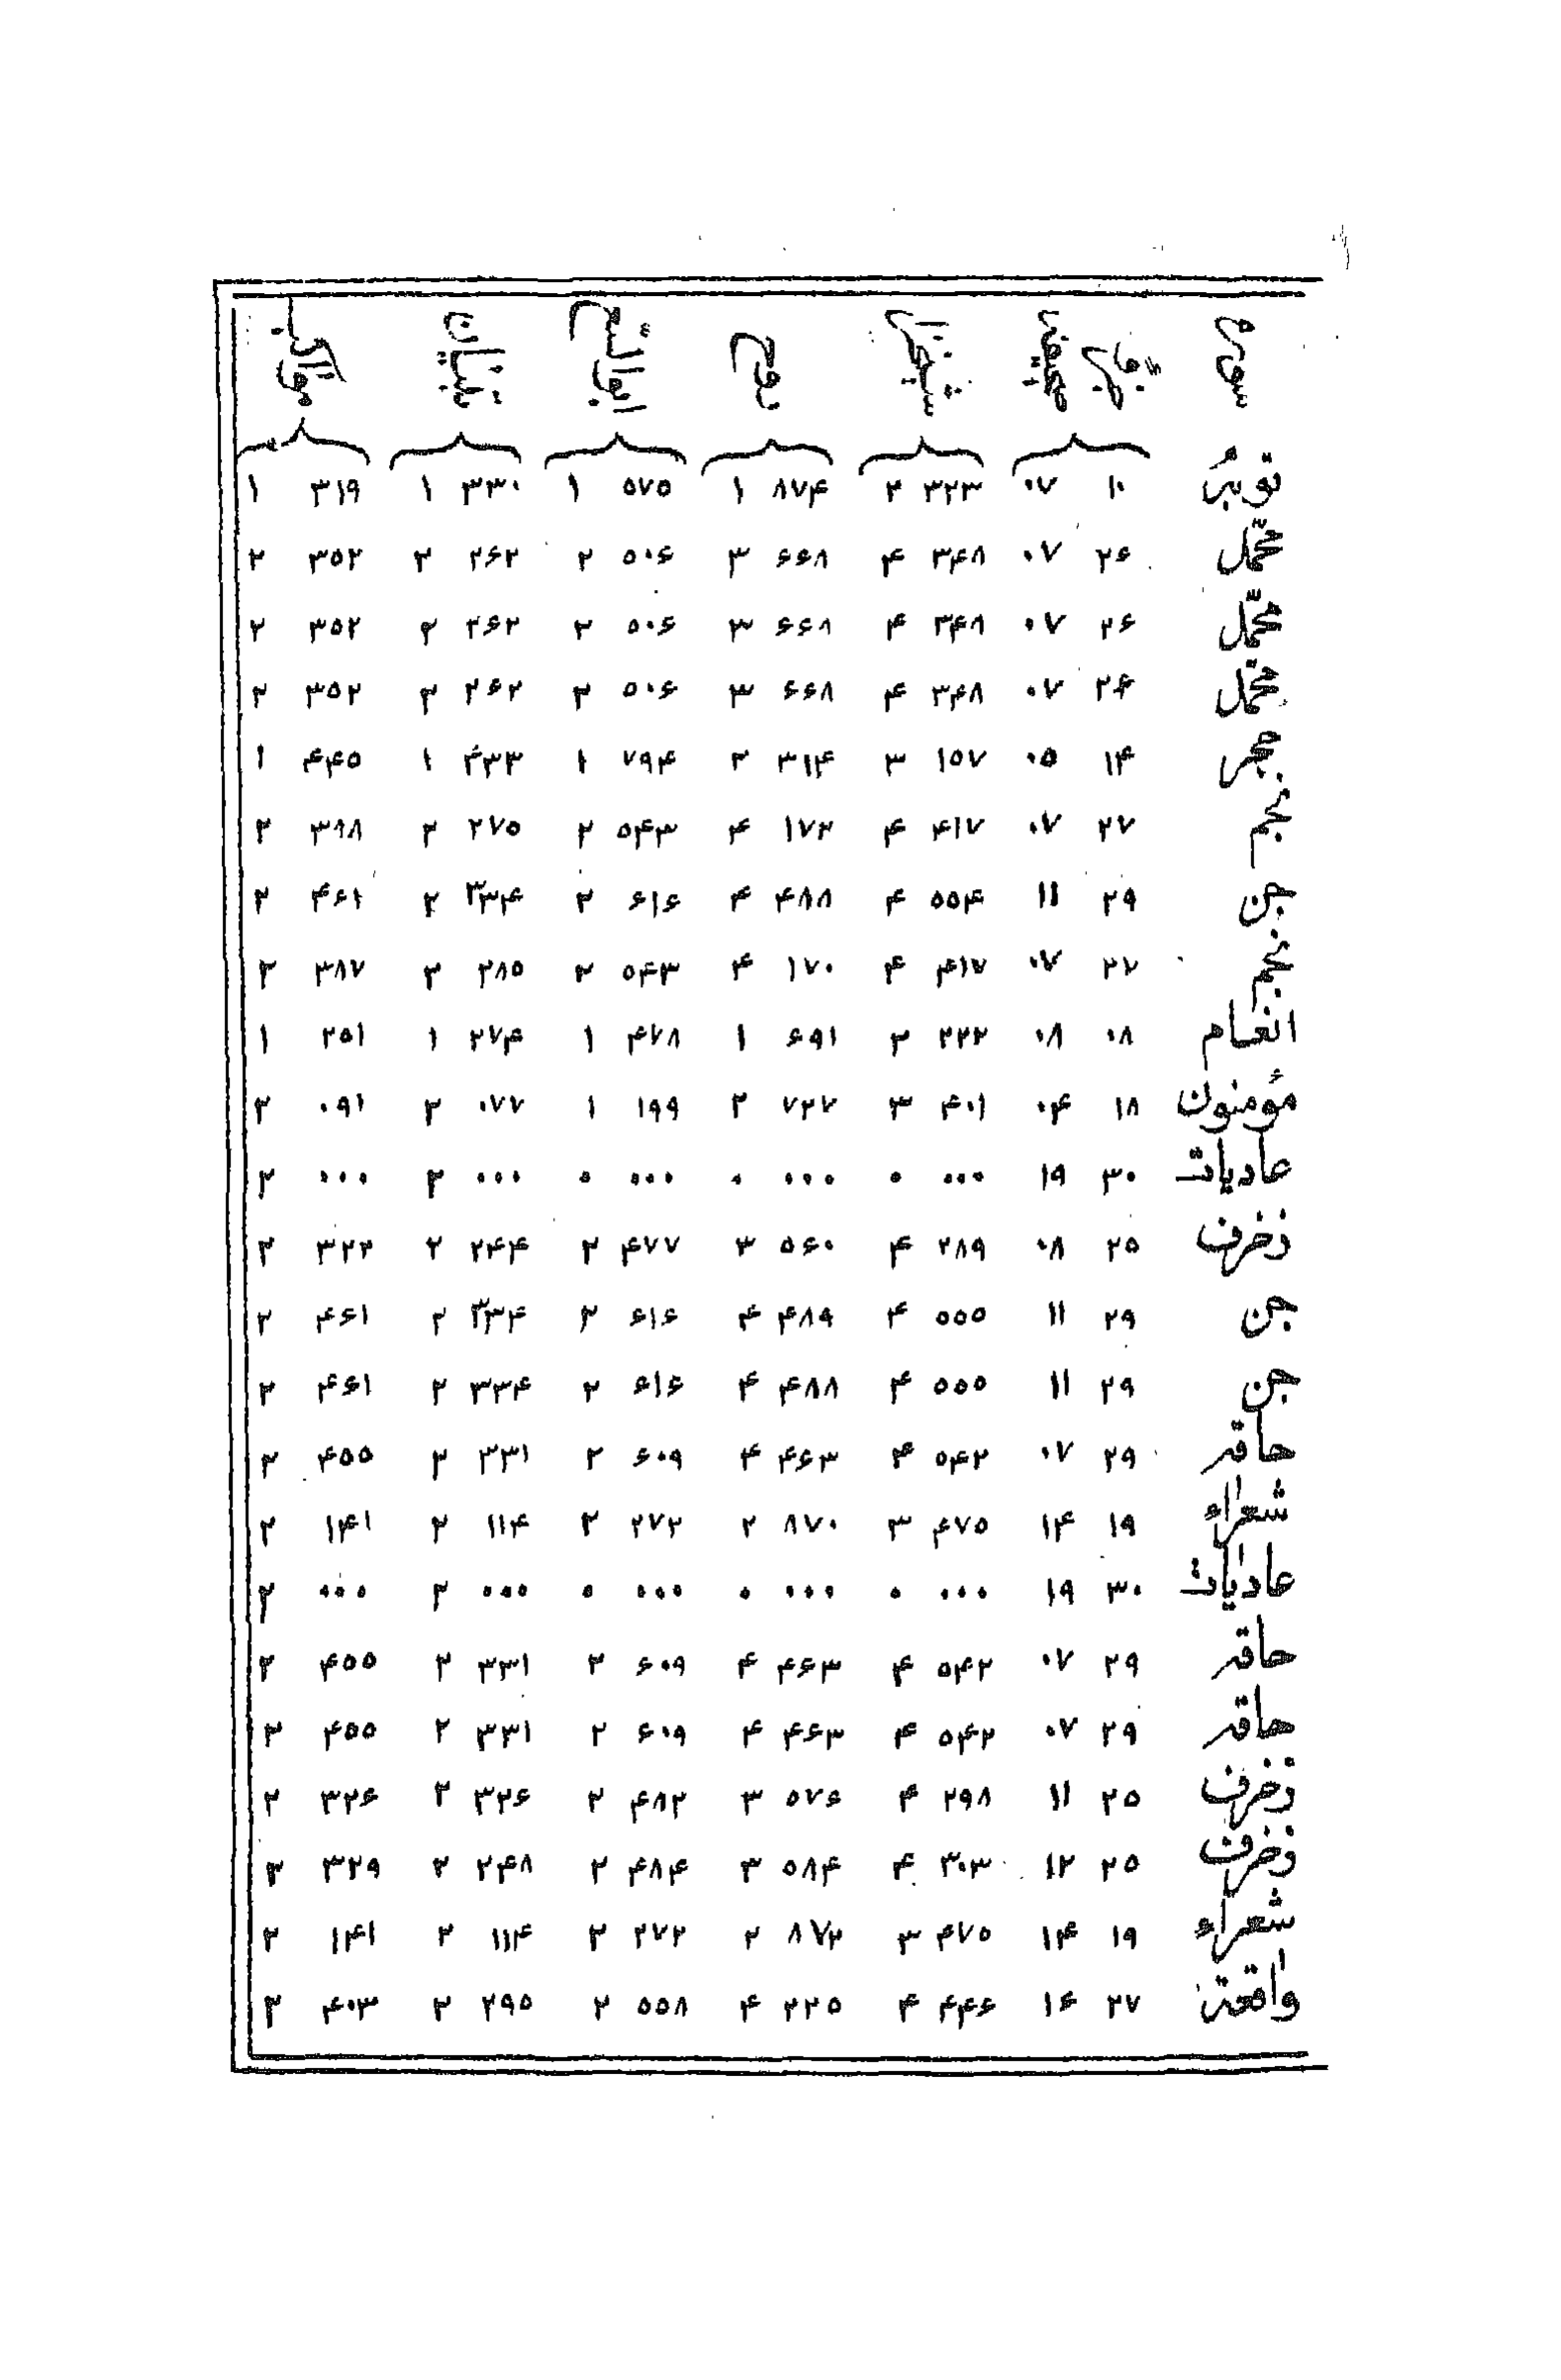 توبہ ۱۰ ۰۷ ۳۲۳ ۲ ۸۷۴ ۱ ۵۷۵ ۱ ۳۳۰ ۱ ۳۱۹ ۱
محمّل ۲۶ ۰۷ ۳۴۸ ۴ ۶۶۸ ۳ ۵۰۶ ۲ ۲۶۲ ۲ ۳۵۲ ۲
محمّل ۲۶ ۰۷ ۳۴۸ ۴ ۶۶۸ ۳ ۵۰۶ ۲ ۲۶۲ ۲ ۳۵۲ ۲
محمّل ۲۶ ۰۷ ۳۴۸ ۴ ۶۶۸ ۳ ۵۰۶ ۲ ۲۶۲ ۲ ۳۵۲ ۲
حجر ۱۴ ۰۵ ۱۵۷ ۳ ۳۱۴ ۲ ۷۹۴ ۱ ۴۳۳ ۱ ۴۴۵ ۱
نجم ۲۷ ۰۷ ۴۱۷ ۴ ۱۷۲ ۴ ۵۴۳ ۲ ۲۷۵ ۲ ۳۸۸ ۲
جن ۲۹ ۱۱ ۵۵۴ ۴ ۴۸۸ ۴ ۶۱۶ ۲ ۳۳۴ ۲ ۴۶۱ ۲
نجم ۲۷ ۰۷ ۴۱۷ ۴ ۱۷۰ ۴ ۵۴۳ ۲ ۲۸۵ ۲ ۳۸۷ ۲
انعام ۰۸ ۰۸ ۲۲۲ ۲ ۶۹۱ ۱ ۴۷۸ ۱ ۲۷۴ ۱ ۲۵۱ ۱
مؤمنون ۱۸ ۰۴ ۴۰۱ ۳ ۷۲۷ ۲ ۱۹۹ ۱ ۰۷۷ ۲ ۰۹۱ ۲
عادیات ۳۰ ۱۹ ۰۰۰ ۰ ۰۰۰ ۰ ۰۰۰ ۰ ۰۰۰ ۲ ۰۰۰ ۲
زخرف ۲۵ ۰۸ ۲۸۹ ۴ ۵۶۰ ۳ ۴۷۷ ۲ ۲۴۴ ۲ ۳۲۲ ۲
جن ۲۹ ۱۱ ۵۵۵ ۴ ۴۸۹ ۴ ۶۱۶ ۲ ۳۳۴ ۲ ۴۶۱ ۲
جن ۲۹ ۱۱ ۵۵۵ ۴ ۴۸۸ ۴ ۶۱۶ ۲ ۳۳۴ ۲ ۴۶۱ ۲
حاقہ ۲۹ ۰۷ ۵۴۲ ۴ ۴۶۳ ۴ ۶۰۹ ۲ ۳۳۱ ۲ ۴۵۵ ۲
شعراء ۱۹ ۱۴ ۴۷۵ ۳ ۸۷۰ ۲ ۲۷۲ ۲ ۱۱۴ ۲ ۱۴۱ ۲
عادیات ۳۰ ۱۹ ۰۰۰ ۰ ۰۰۰ ۰ ۰۰۰ ۰ ۰۰۰ ۲ ۰۰۰ ۲
حاقہ ۲۹ ۰۷ ۵۴۲ ۴ ۴۶۳ ۴ ۶۰۹ ۲ ۳۳۱ ۲ ۴۵۵ ۲
حاقہ ۲۹ ۰۷ ۵۴۲ ۴ ۴۶۳ ۴ ۶۰۹ ۲ ۳۳۱ ۲ ۴۵۵ ۲
زخرف ۲۵ ۱۱ ۲۹۸ ۴ ۵۷۶ ۳ ۴۸۲ ۲ ۳۲۶ ۲ ۳۲۶ ۲
زخرف ۲۵ ۱۲ ۳۰۳ ۴ ۵۸۴ ۳ ۴۸۴ ۲ ۲۴۸ ۲ ۳۲۹ ۲
شعراء ۱۹ ۱۴ ۴۷۵ ۳ ۸۷۲ ۲ ۲۷۲ ۲ ۱۱۴ ۲ ۱۴۱ ۲
واقعۃ ۲۷ ۱۶ ۴۴۶ ۴ ۲۲۵ ۴ ۵۵۸ ۲ ۲۹۵ ۲ ۴۰۳ ۲